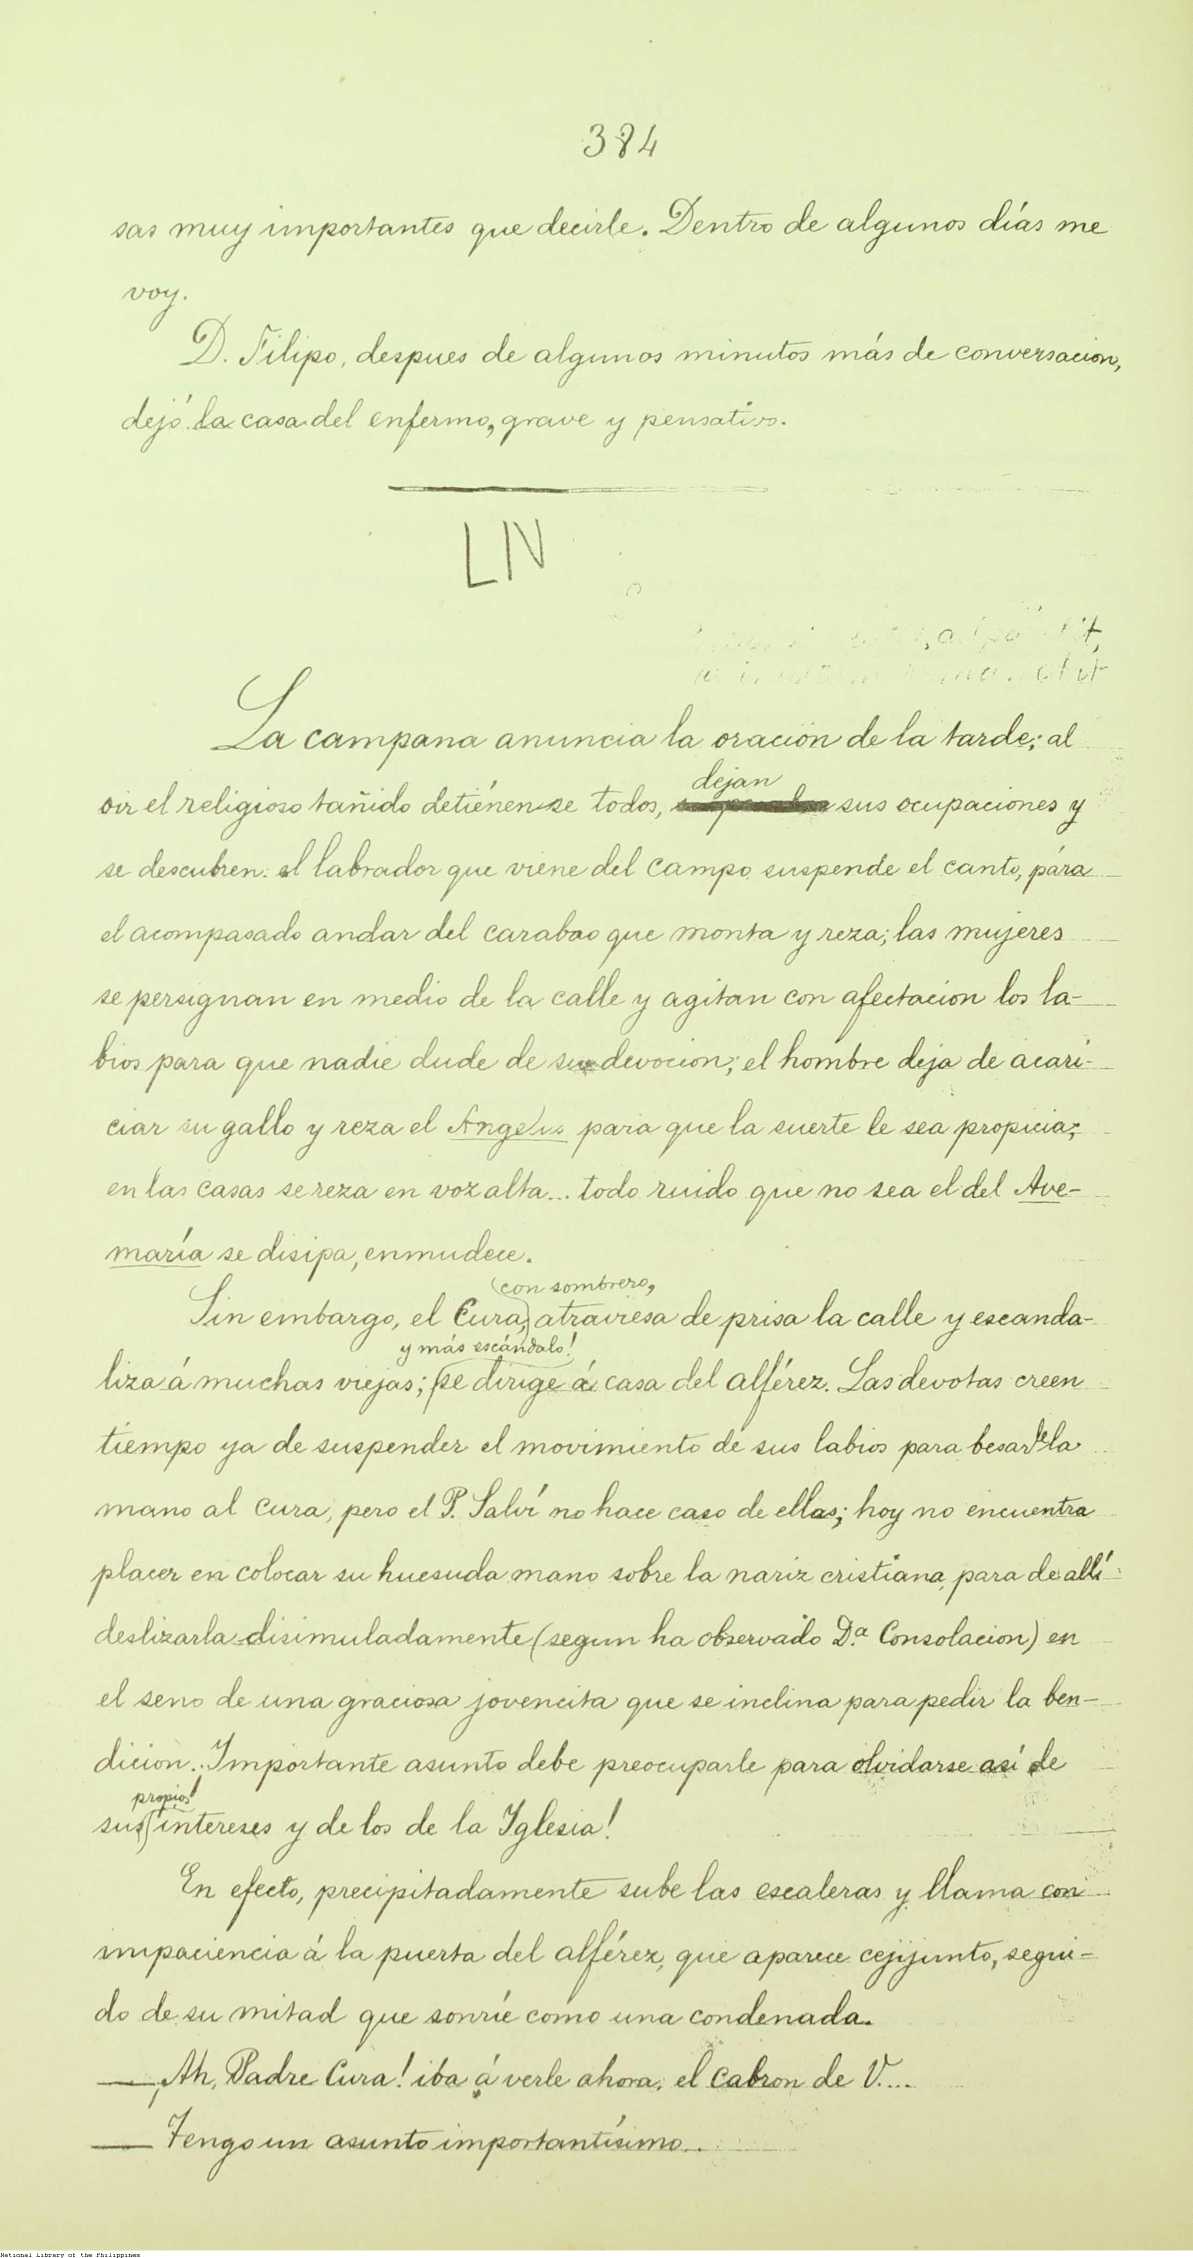 384
sas muy importantes que decirle. Dentro de algunos días me
voy.
D. Filipo, despues de algunos minutos más de conversacion,
dejó la casa del enfermo, grave y pensativo.
LIV
La campana anuncia la oración de la tarde; al
dejan
oir el religioso tañido detiénense todos, sus ocupaciones y
se descubren: el labrador que viene del campo suspende el canto, pára
el acompasado andar del carabao que monta y reza; las mujeres
se persignan en medio de la calle y agitan con afectacion los la-
bios para que nadie dude de su devocion; el hombre deja de acari-
ciar su gallo y reza el Angelus para que la suerte le sea propicia;
en las casas se reza en voz alta... todo ruido que no sea el del Ave-
maría se disipa, enmudece.
con sombrero,
Sin embargo, el Cura, atraviesa de prisa la calle y escanda-
y más escándalo!
liza á muchas viejas; se dirige á casa del alférez. Las devotas creen
tiempo ya de suspender el movimiento de sus labios para besarle la
mano al cura, pero el P. Salví no hace caso de ellas; hoy no encuentra
placer en colocar su huesuda mano sobre la nariz cristiana, para de allí
deslizarla disimuladamente (segun ha observado D.ª Consolacion) en
el seno de una graciosa jovencita que se inclina para pedir la ben-
dicion. ¡Importante asunto debe preocuparle para olvidarse así de
propios
sus intereses y de los de la Iglesia!
En efecto, precipitadamente sube las escaleras y llama con
impaciencia á la puerta del alférez, que aparece cejijunto, segui-
do de su mitad que sonríe como una condenada.
— ¡Ah, Padre Cura! iba á verle ahora, el cabron de V....
— Tengo un asunto importantísimo...